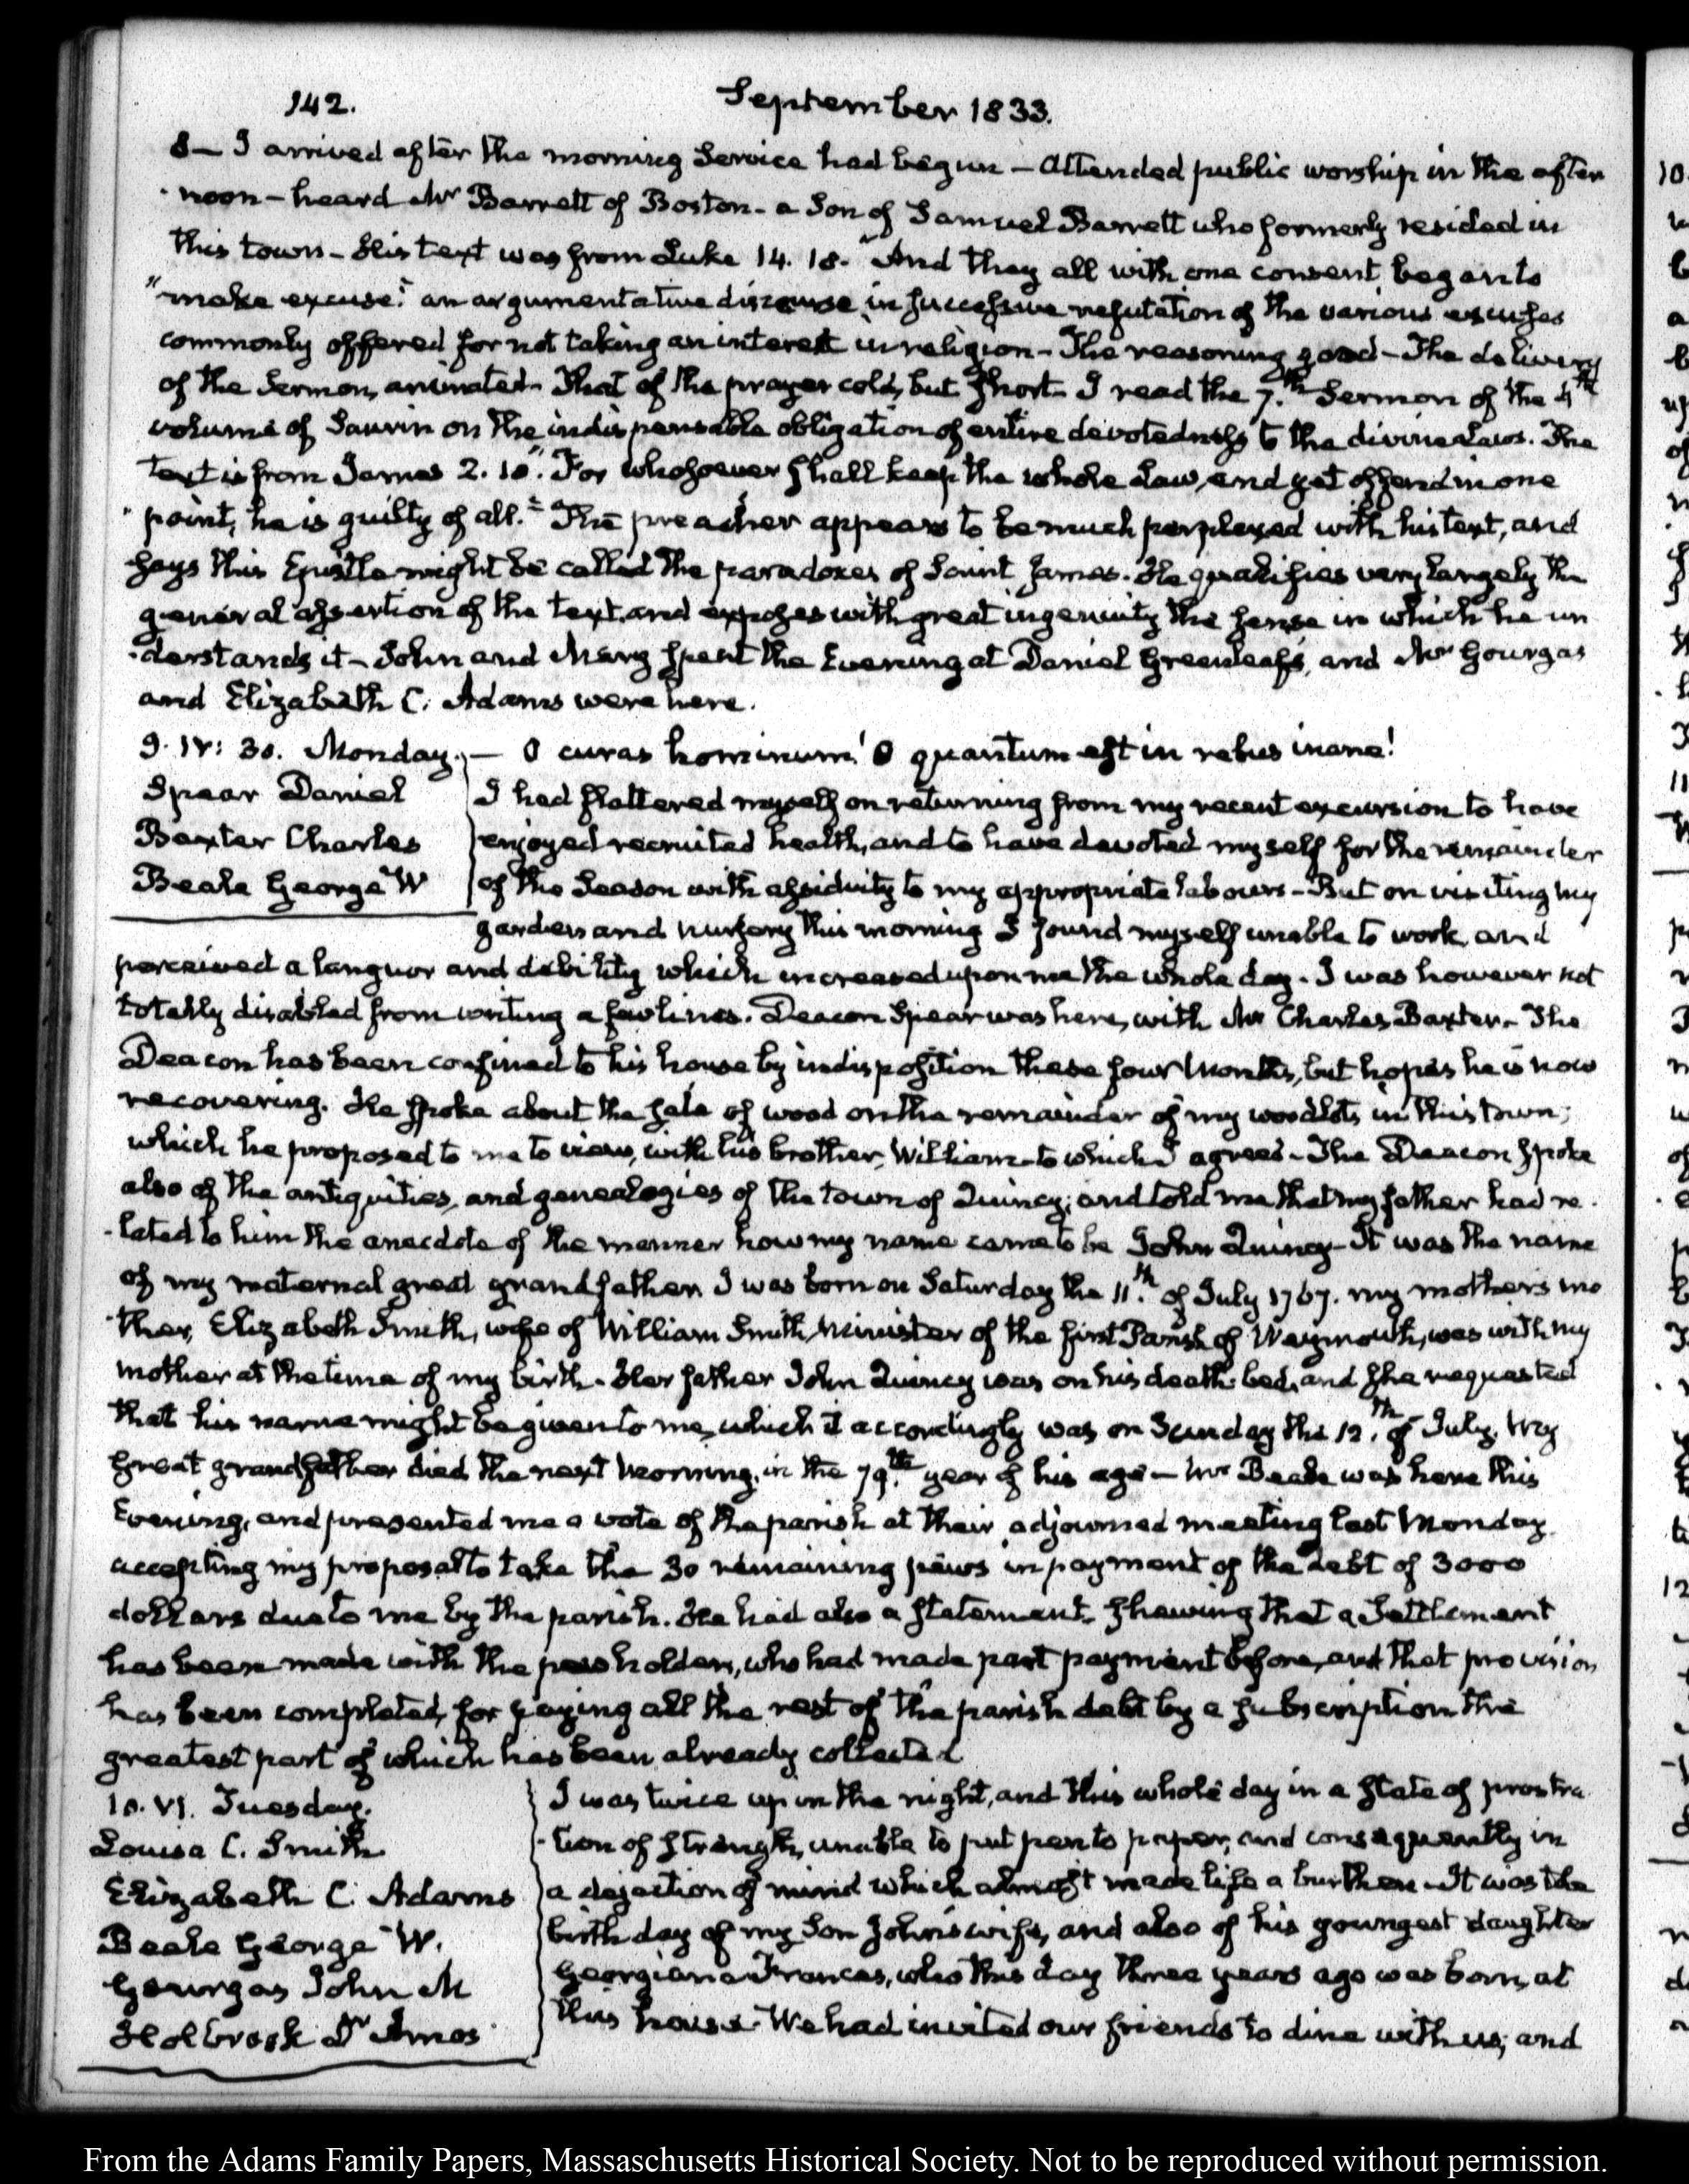 142.
September 1833.
8— I arrived after the morning Service had begun — Attended public worship in the after
noon — heard Mr Barrett of Boston — a Son of Samuel Barrett who formerly resided in
this town — His text was from Luke 14. 18. "And they all with one consent, began to
"make excuse." an argumentative discourse, in successive refutation of the various excuses
commonly offered for not taking an interest in religion — The reasoning good — The delivery
of the Sermon, animated — That of the prayer cold, but short — I read the 7.th Sermon of the 4th
volume of Saurin on the indispensable obligation of entire devotedness to the divine Laws. The
text is from James 2. 10. "For whosoever shall keep the whole Law, and yet offend in one
"point, he is guilty of all." The preacher appears to be much perplexed with his text, and
says this Epistle might be called the paradoxes of Saint James. He qualifies very largely the
general assertion of the text, and exposes with great ingenuity the sense in which he un
-derstands it — John and Mary spent the Evening at Daniel Greenleaf's, and Mr Gourgas
and Elizabeth C. Adams were here.
9. IV: 30. Monday. — O curas hominum! O quantum est in rebus inane!
Spear Daniel
Baxter Charles
Beale George W
I had flattered myself on returning from my recent excursion to have
enjoyed recruited health, and to have devoted myself for the remainder
of the Season with assiduity to my appropriate labours — But on visiting my
garden and nursery this morning I found myself unable to work, and
perceived a languor and debility which increased upon me the whole day. I was however not
totally disabled from writing a few lines. Deacon Spear was here, with Mr Charles Baxter — The
Deacon has been confined to his house by indisposition these four Months, but hopes he is now
recovering. He spoke about the sale of wood on the remainder of my woodlots in this town;
which he proposed to me to view, with his brother, William — to which I agreed — The Deacon spoke
also of the antiquities, and genealogies of the town of Quincy; and told me that my father had re
-lated to him the anecdote of the manner how my name came to be John Quincy — It was the name
of my maternal great grandfather. I was born on Saturday the 11.th of July 1767. my mothers mo
-ther, Elizabeth Smith, wife of William Smith, Minister of the first Parish of Weymouth, was with my
mother at the time of my birth. Her father John Quincy was on his death bed, and she requested
that his name might be given to me, which it accordingly was on Sunday the 12.th of July. My
Great grandfather died the next Morning, in the 79.th year of his age — Mr Beale was here this
Evening, and presented me a vote of the parish at their adjourned meeting last Monday
accepting my proposal to take the 30 remaining pews in payment of the debt of 3000
dollars due to me by the parish. He had also a statement, shewing that a Settlement
has been made with the pewholders, who had made part payment before, and that provision
has been completed, for paying all the rest of the parish debt by a subscription the
greatest part of which has been already collected
10. VI. Tuesday.
Louisa C. Smith
Elizabeth C. Adams
Beale George W.
Gourgas John M
Holbrook Dr Amos
I was twice up in the night, and this whole day in a state of prostra
-tion of strength, unable to put pen to paper, and consequently in
a dejection of mind which almost made life a burthen — It was the
birth day of my Son John's wife, and also of his youngest daughter
Georgiana Frances, who this day three years ago was born, at
this house — We had invited our friends to dine with us; and
From the Adams Family Papers, Massachusetts Historical Society. Not to be reproduced without permission.